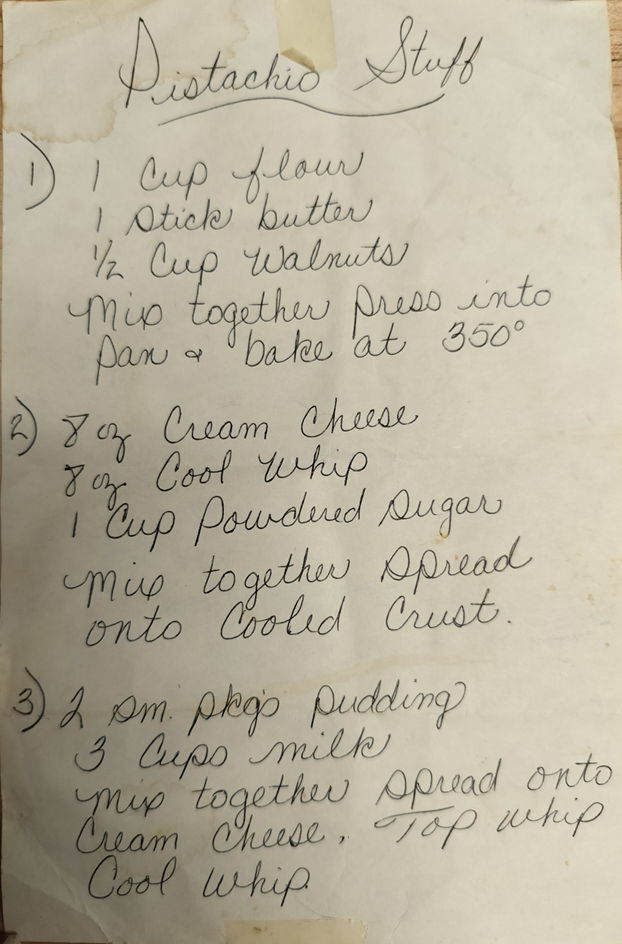 Pistachio Stuff
1) 1 Cup flour
1 stick butter
1/2 Cup Walnuts
Mix together press into
pan & bake at 350°
2) 8 oz Cream Cheese
8 oz Cool Whip
1 Cup Powdered Sugar
Mix together spread
onto Cooled Crust.
3) 2 sm. pkgs pudding
3 Cups milk
Mix together spread onto
Cream Cheese. Top whip
Cool Whip